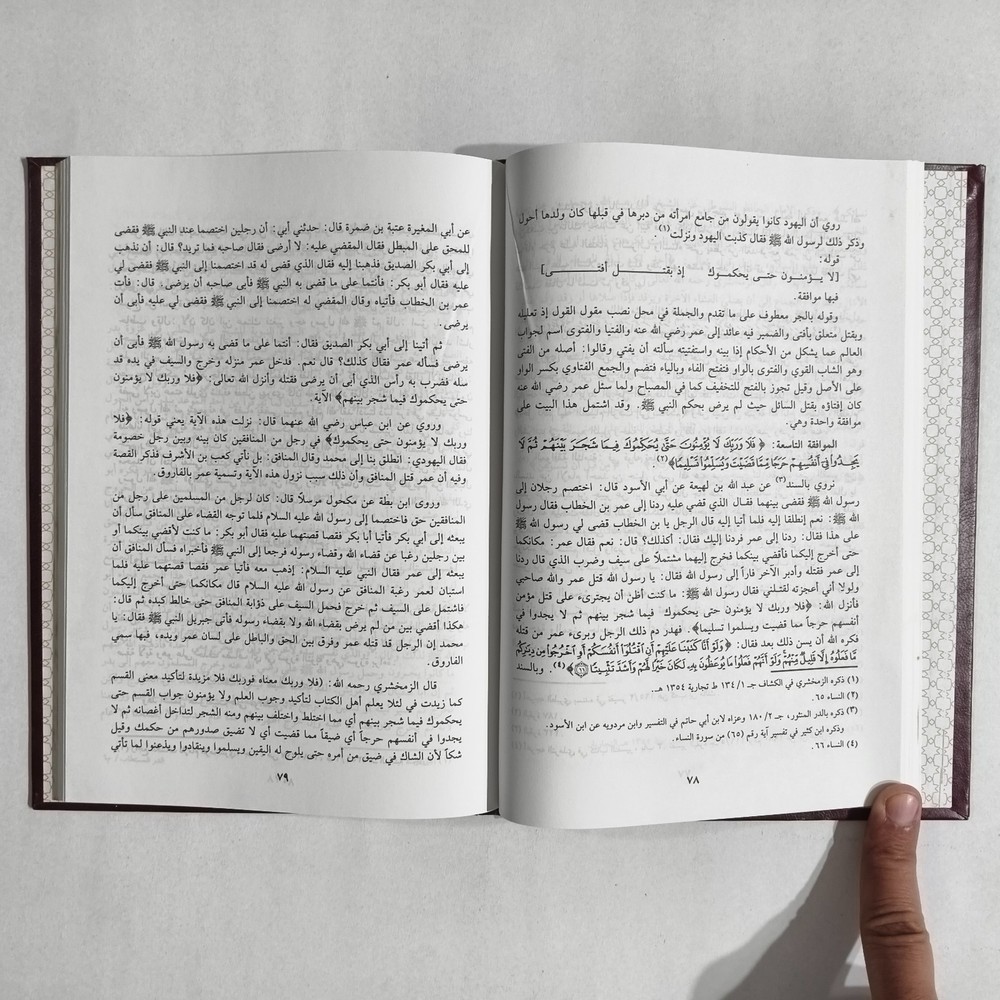 روي أن اليهود كانوا يقولون من جامع امرأته من دبرها في قبلها كان ولدها أحول
وذكر ذلك لرسول الله ﷺ فقال كذبت اليهود ونزلت(١)
قوله:
[لا يــؤمنــون حتــى يحكمــوك إذ بقتــل أفتــى]
فيها موافقة.
وقوله بالجر معطوف على ما تقدم والجملة في محل نصب مقول القول إذ تعليله
وبقتل متعلق بأفتى والضمير فيه عائد إلى عمر رضي الله عنه والفتيا والفتوى اسم لجواب
العالم عما يشكل من الأحكام إذا بينه واستفتيته سألته أن يفتي وقالوا: أصله من الفتى
وهو الشاب القوي والفتوى بالواو فتفتح الفاء وبالياء فتضم والجمع الفتاوي بكسر الواو
على الأصل وقيل تجوز بالفتح للتخفيف كما في المصباح ولما سئل عمر رضي الله عنه
كان إفتاؤه بقتل السائل حيث لم يرض بحكم النبي ﷺ. وقد اشتمل هذا البيت على
موافقة واحدة وهي.
الموافقة التاسعة: ﴿فَلَا وَرَبِّكَ لَا يُؤْمِنُونَ حَتَّىٰ يُحَكِّمُوكَ فِيمَا شَجَرَ بَيْنَهُمْ ثُمَّ لَا
يَجِدُوا فِي أَنفُسِهِمْ حَرَجًا مِّمَّا قَضَيْتَ وَيُسَلِّمُوا تَسْلِيمًا﴾(٢).
نروي بالسند(٣) عن عبد الله بن لهيعة عن أبي الأسود قال: اختصم رجلان إلى
رسول الله ﷺ فقضى بينهما فقال الذي قضي عليه ردنا إلى عمر بن الخطاب فقال رسول
الله ﷺ: نعم إنطلقا إليه فلما أتيا إليه قال الرجل يا بن الخطاب قضى لي رسول الله ﷺ
على هذا فقال: ردنا إلى عمر فردنا إليك فقال: أكذلك؟ قال: نعم فقال عمر: مكانكما
حتى أخرج إليكما فأقضي بينكما فخرج إليهما مشتملاً على سيف وضرب الذي قال ردنا
إلى عمر فقتله وأدبر الآخر فاراً إلى رسول الله ﷺ فقال: يا رسول الله قتل عمر والله صاحبي
ولولا أني أعجزته لقتلني فقال رسول الله ﷺ: ما كنت أظن أن يجترىء على قتل مؤمن
فأنزل الله: ﴿فلا وربك لا يؤمنون حتى يحكموك فيما شجر بينهم ثم لا يجدوا في
أنفسهم حرجاً مما قضيت ويسلموا تسليما﴾. فهدر دم ذلك الرجل وبرىء عمر من قتله
فكره الله أن يسن ذلك بعد فقال: ﴿وَلَوْ أَنَّا كَتَبْنَا عَلَيْهِمْ أَنِ اقْتُلُوا أَنفُسَكُمْ أَوِ اخْرُجُوا مِن دِيَارِكُم
مَّا فَعَلُوهُ إِلَّا قَلِيلٌ مِّنْهُمْ وَلَوْ أَنَّهُمْ فَعَلُوا مَا يُوعَظُونَ بِهِ لَكَانَ خَيْرًا لَّهُمْ وَأَشَدَّ تَثْبِيتًا ٦٦﴾(٤). وبالسند
(١) ذكره الزمخشري في الكشاف جـ ١/١٣٤ ط تجارية ١٣٥٤ هـ.
(٢) النساء ٦٥.
(٣) ذكره بالدر المنثور، جـ ٢/١٨٠ وعزاه لابن أبي حاتم في التفسير وابن مردويه عن ابن الأسود.
وذكره ابن كثير في تفسير آية رقم (٦٥) من سورة النساء.
(٤) النساء ٦٦.
٧٨
عن أبي المغيرة عتبة بن ضمرة قال: حدثني أبي: أن رجلين اختصما عند النبي ﷺ فقضى
للمحق على المبطل فقال المقضي عليه: لا أرضى فقال صاحبه فما تريد؟ قال: أن نذهب
إلى أبي بكر الصديق فذهبنا إليه فقال الذي قضى له قد اختصمنا إلى النبي ﷺ فقضى لي
عليه فقال أبو بكر: فأنتما على ما قضى به النبي ﷺ فأبى صاحبه أن يرضى، قال: فأت
عمر بن الخطاب فأتياه وقال المقضي له اختصمنا إلى النبي ﷺ فقضى لي عليه فأبى أن
يرضى.
ثم أتينا إلى أبي بكر الصديق فقال: أنتما على ما قضى به رسول الله ﷺ فأبى أن
يرضى فسأله عمر فقال كذلك؟ قال نعم. فدخل عمر منزله وخرج والسيف في يده قد
سله فضرب به رأس الذي أبى أن يرضى فقتله وأنزل الله تعالى: ﴿فلا وربك لا يؤمنون
حتى يحكموك فيما شجر بينهم﴾ الآية.
وروي عن ابن عباس رضي الله عنهما قال: نزلت هذه الآية يعني قوله: ﴿فلا
وربك لا يؤمنون حتى يحكموك﴾ في رجل من المنافقين كان بينه وبين رجل خصومة
فقال اليهودي: انطلق بنا إلى محمد وقال المنافق: بل نأتي كعب بن الأشرف فذكر القصة
وفيه أن عمر قتل المنافق وأن ذلك سبب نزول هذه الآية وتسمية عمر بالفاروق.
وروى ابن بطة عن مكحول مرسلاً قال: كان لرجل من المسلمين على رجل من
المنافقين حق فاختصما إلى رسول الله عليه السلام فلما توجه القضاء على المنافق سأل أن
يبعثه إلى أبي بكر فأتيا أبا بكر فقصا قصتهما عليه فقال أبو بكر: ما كنت لأقضي بينكما أو
بين رجلين رغبا عن قضاء الله وقضاء رسوله فرجعا إلى النبي ﷺ فأخبراه فسأل المنافق أن
يبعثه إلى عمر فقال النبي عليه السلام: إذهب معه فأتيا عمر فقصا قصتهما عليه فلما
استبان لعمر رغبة المنافق عن رسول الله عليه السلام قال مكانكما حتى أخرج إليكما
فاشتمل على السيف ثم خرج فحمل السيف على ذؤابة المنافق حتى خالط كبده ثم قال:
هكذا أقضي بين من لم يرض بقضاء الله ولا بقضاء رسوله فأتى جبريل النبي ﷺ فقال: يا
محمد إن الرجل قد قتله عمر وفرق بين الحق والباطل على لسان عمر ويده، فبها سمي
الفاروق.
قال الزمخشري رحمه الله: (فلا وربك معناه فوربك فلا مزيدة لتأكيد معنى القسم
كما زيدت في لئلا يعلم أهل الكتاب لتأكيد وجوب العلم ولا يؤمنون جواب القسم حتى
يحكموك فيما شجر بينهم أي مما اختلط واختلف بينهم ومنه الشجر لتداخل أغصانه ثم لا
يجدوا في أنفسهم حرجاً أي ضيقاً مما قضيت أي لا تضيق صدورهم من حكمك وقيل
شكاً لأن الشاك في ضيق من أمره حتى يلوح له اليقين ويسلموا وينقادوا ويذعنوا لما تأتي
٧٩